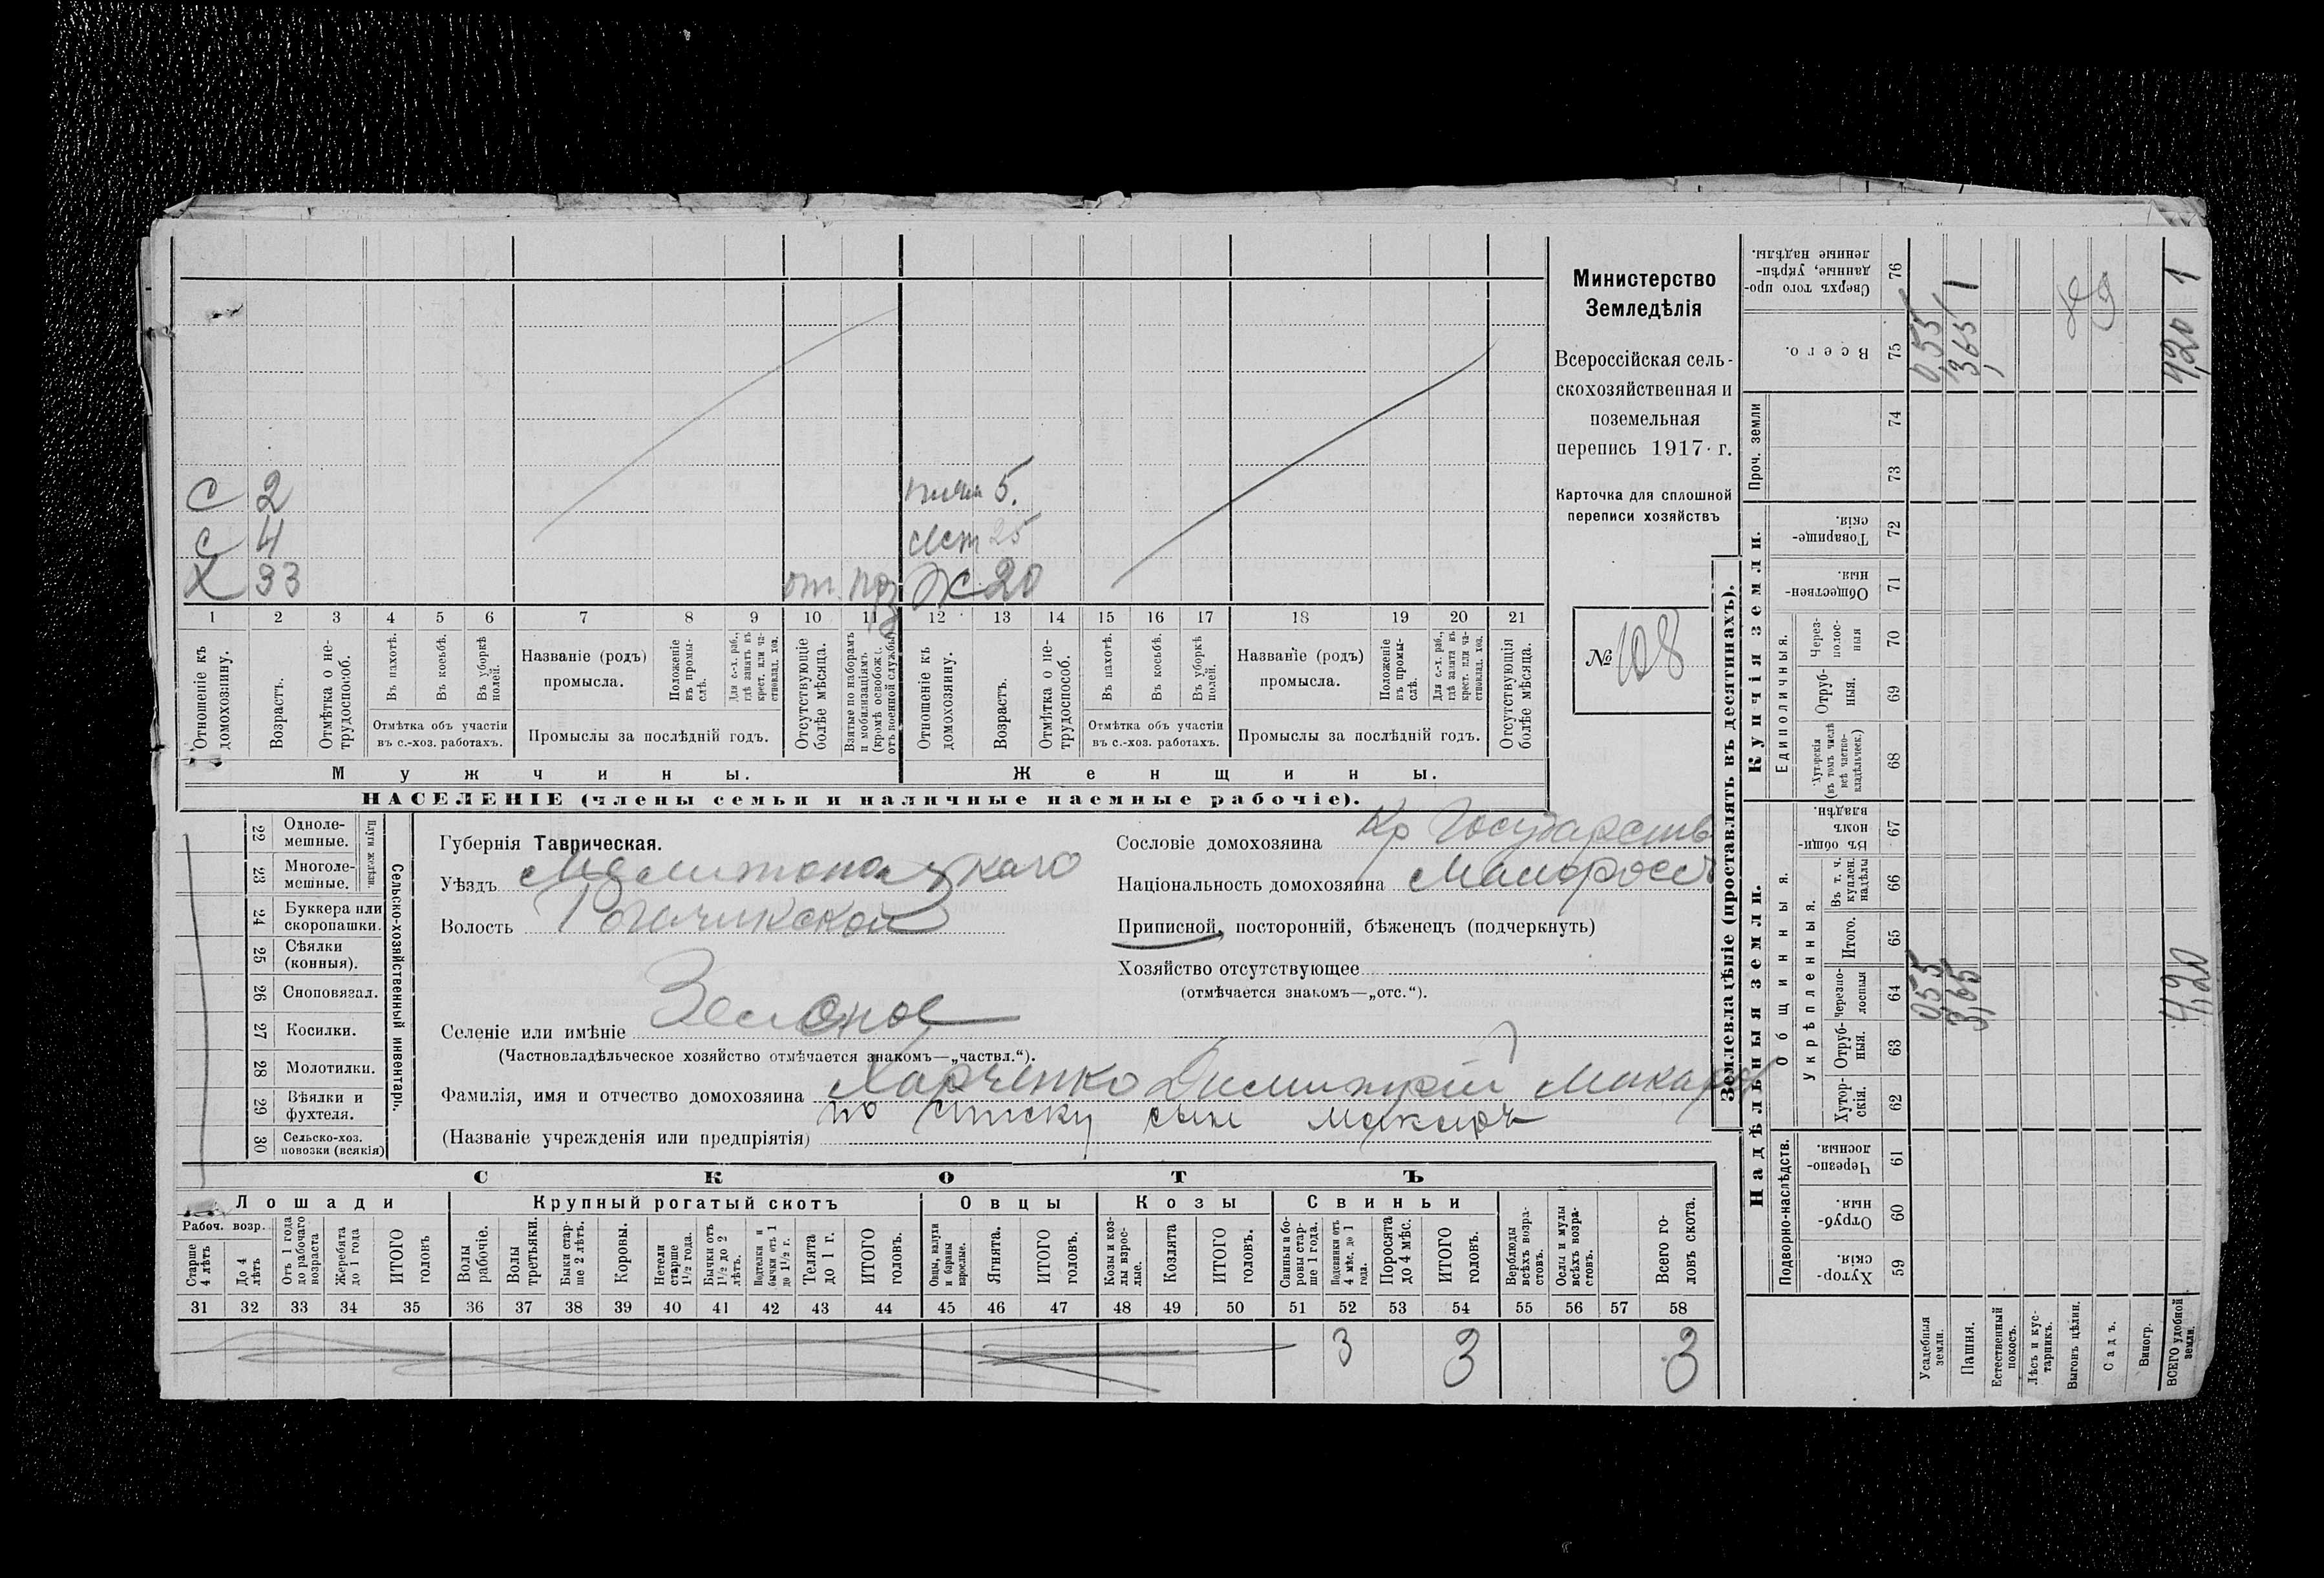 С 2 племя 5.
С 4 сест 25
Х 33 от. Ж 20
1 2 3 4 5 6 7 8 9 10 11 12 13 14 15 16 17 18 19 20 21
Отношеніе къ домохозяину.
Возрастъ.
Отмѣтка о нетрудоспособ.
Въ пахотѣ.
Въ косьбѣ.
Въ уборкѣ полей.
Отмѣтка объ участіи въ с.-хоз. работахъ.
Названіе (родъ) промысла.
Положеніе въ промыслѣ.
Для с.-х. раб., гдѣ занятъ въ крест. или частновлад. хоз.
Промыслы за послѣдній годъ.
Отсутствующіе болѣе мѣсяца.
Взятые по наборамъ и мобилизаціямъ (кромѣ освобожд. отъ военной службы
Отношеніе къ домохозяину.
Возрастъ.
Отмѣтка о нетрудоспособ.
Въ пахотѣ.
Въ косьбѣ.
Въ уборкѣ полей.
Отмѣтка объ участіи въ с.-хоз. работахъ.
Названіе (родъ) промысла.
Положеніе въ промыслѣ.
Для с.-х. раб., гдѣ занята въ крест. или частновлад. хоз.
Промыслы за послѣдній годъ.
Отсутствующія болѣе мѣсяца.
Мужчины. Женщины.
НАСЕЛЕНІЕ (члены семьи и наличные наемные рабочіе).
Министерство
Земледѣлія
Всероссійская сель-
скохозяйственная и
поземельная
перепись 1917 г.
Карточка для сплошной
переписи хозяйствъ
№ 108
Сельско-хозяйственный инвентарь.
Плуги желѣзн.
22 Однолемешные.
23 Многолемешные.
24 Буккера или скоропашки.
25 Сѣялки (конныя).
26 Сноповязал.
27 Косилки.
28 Молотилки.
29 Вѣялки и фухтеля.
30 Сельско-хоз. повозки (всякія)
Губернія Таврическая.
Уѣздъ Мелитопольскаго
Волость Рогачикской
Селеніе или имѣніе Зеленое
(Частновладѣльческое хозяйство отмѣчается знакомъ—„частвл.“).
Фамилія, имя и отчество домохозяина Харченко Димитрій Макаров
по списку сын Макара
(Названіе учрежденія или предпріятія)
Сословіе домохозяина Кр Государств
Національность домохозяина Малоросс
Приписной, посторонній, бѣженецъ (подчеркнуть)
Хозяйство отсутствующее
(отмѣчается знакомъ—„отс.“).
СКОТЪ
Лошади Крупный рогатый скотъ Овцы Козы Свиньи
Рабоч. возр.
Старше 4 лѣтъ
До 4 лѣтъ
Отъ 1 года до рабочаго возраста
Жеребята до 1 года
ИТОГО головъ
Волы рабочіе.
Волы третьяки.
Быки старше 2 лѣтъ.
Коровы.
Нетели старше 1½ года.
Бычки отъ 1½ до 2 лѣтъ.
Подтелки и бычки отъ 1 до 1½ г.
Телята до 1 г.
ИТОГО головъ.
Овцы, валухи и бараны взрослые.
Ягнята.
ИТОГО головъ.
Козы и козлы взрослые.
Козлята
ИТОГО головъ.
Свиньи и боровы старше 1 года.
Подсвинки отъ 4 мѣс. до 1 года.
Поросята до 4 мѣс.
ИТОГО головъ.
Верблюды всѣхъ возрастовъ.
Ослы и мулы всѣхъ возрастовъ.
Всего головъ скота.
31 32 33 34 35 36 37 38 39 40 41 42 43 44 45 46 47 48 49 50 51 52 53 54 55 56 57 58
3 3 3
Землевладѣніе (проставлять въ десятинахъ).
Надѣльныя земли. Купчія земли. Проч. земли
Подворно-наслѣдств.
Общинныя.
Укрѣпленныя.
Единоличныя.
Хуторскія. 59
Отрубныя. 60
Черезполосныя 61
Хуторскія. 62
Отрубныя. 63
Черезполосныя 64
Итого. 65
Въ т. ч. куплен. надѣлы 66
Въ общинномъ владѣн. 67
Хуторскія (въ томъ числѣ всѣ частновладѣльческ.) 68
Отрубныя. 69
Черезполосныя 70
Общественныя. 71
Товарищескія. 72
73
74
Всего. 75
Сверхъ того проданные, укрѣпленные надѣлы. 76
Усадебныя земли. 0,55 0,55
Пашня. 3,65 3,65 1
Естественный покосъ.
Лѣсъ и кустарникъ.
Выгонъ цѣлин.
Садъ.
Виногр.
ВСЕГО удобной земли. 4,20 4,20 1